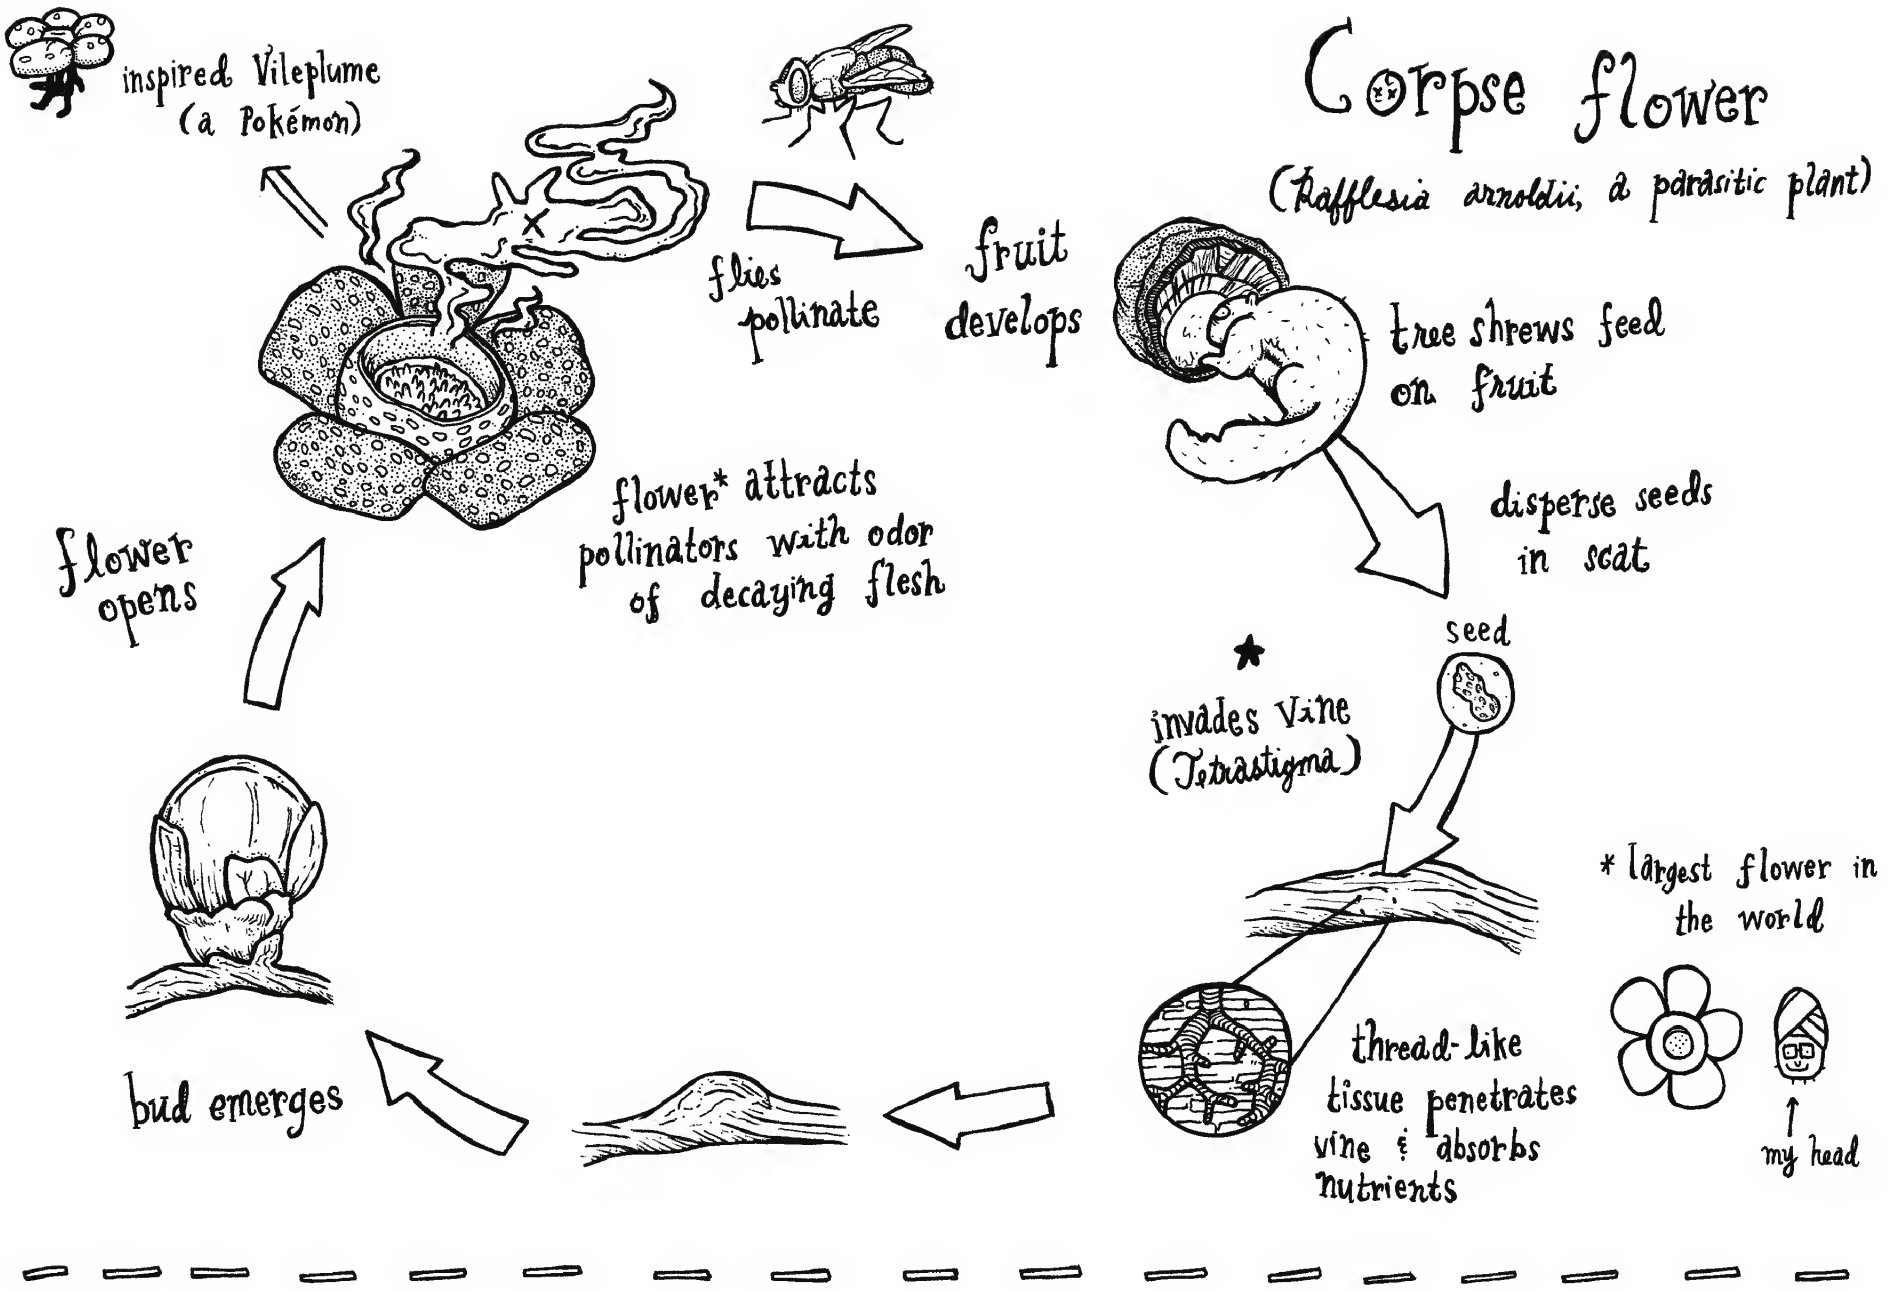 Corpse flower
(Rafflesia arnoldii, a parasitic plant)
inspired Vileplume
(a Pokémon)
flies
pollinate
fruit
develops
tree shrews feed
on fruit
disperse seeds
in scat
seed
invades vine
(Tetrastigma)
thread-like
tissue penetrates
vine & absorbs
nutrients
bud emerges
flower
opens
flower* attracts
pollinators with odor
of decaying flesh
* largest flower in
the world
my head